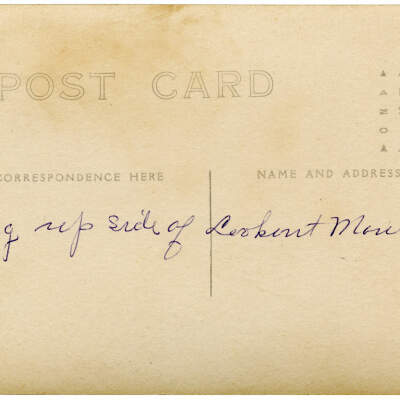 POST CARD
CORRESPONDENCE HERE
NAME AND ADDRESS
g up side of Lookout Moun